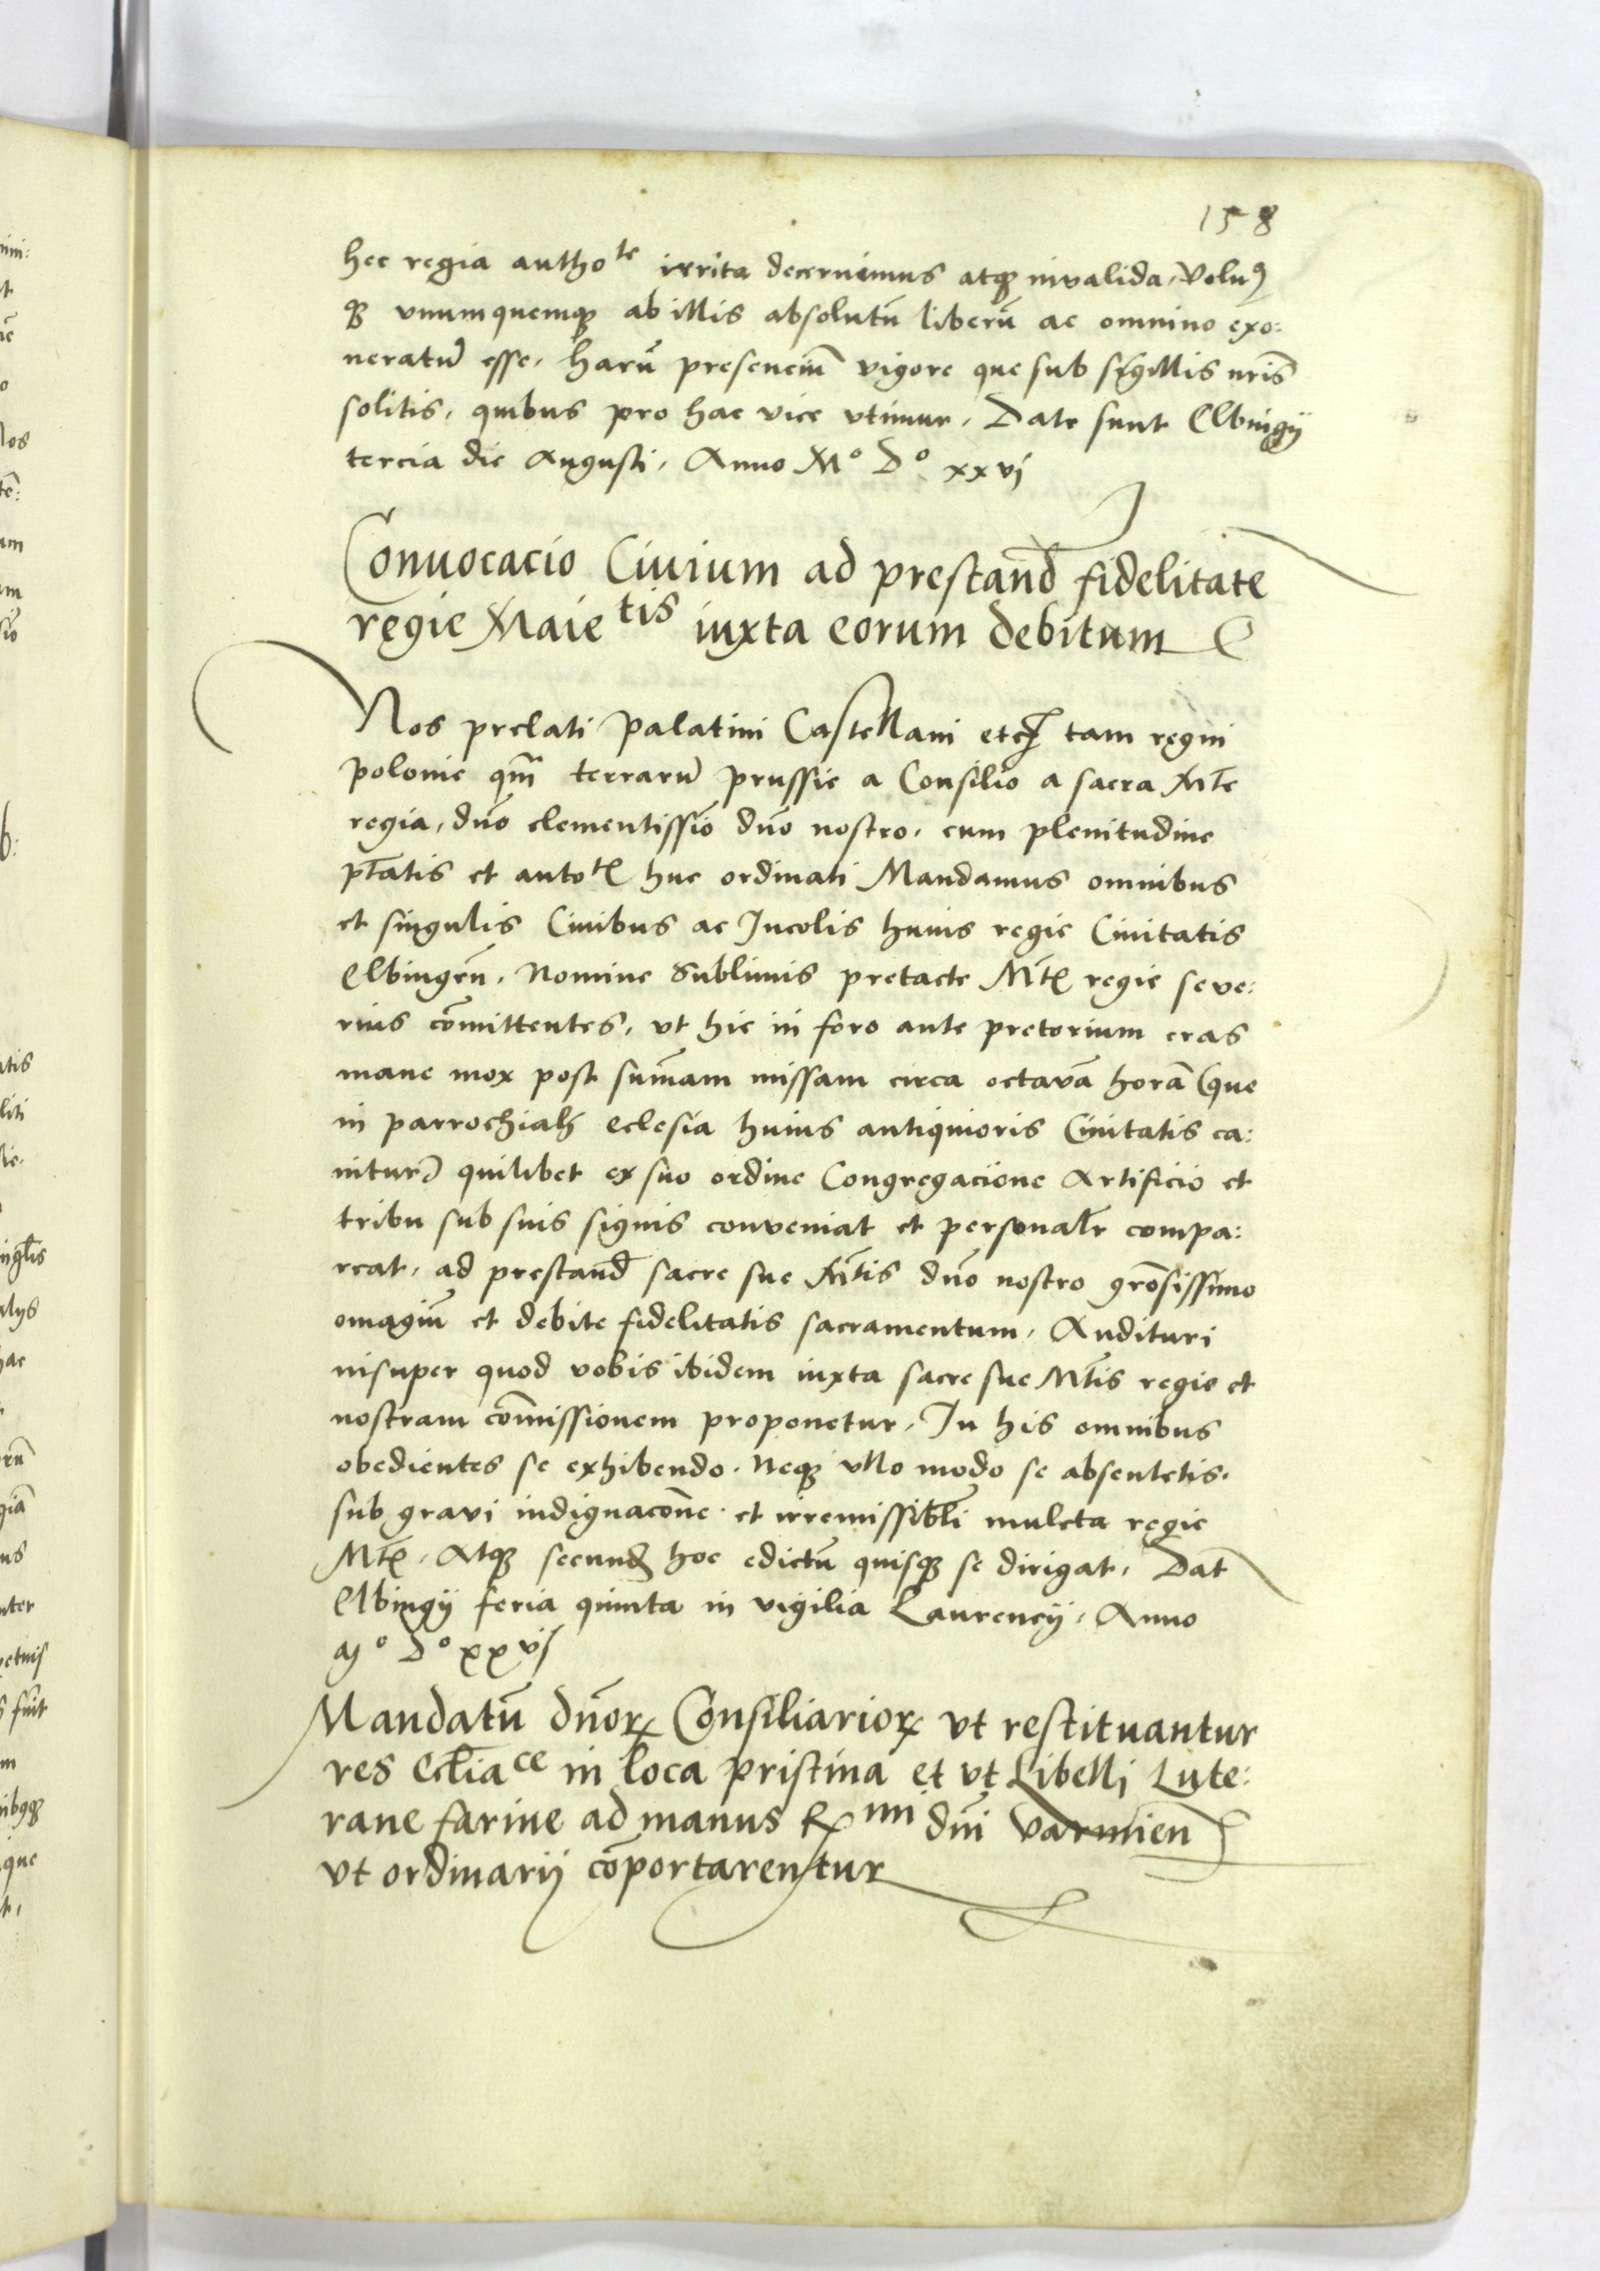 158
hec regia autho^te irrita decernimus atq; invalida, Volu9
q; vnumquemq; ab illis absolutū liberū ac omnino exo:
neratū esse, harū presenciū vigore que sub sigillis nrīs
solitis, quibus pro hac vice vtimur, Date sunt Elbingij
tercia die Augusti, Anno M° D° xxvj
Convocacio Civium ad prestand̄ fidelitate
regie Maie^tis iuxta eorum debitum
Nos prelati palatini Castellani etc tam regni
polonie qm̄ terrarū prussie a Consilio a sacra Mte
regia, dn̄o clementissīo dn̄o nostro, cum plenitudine
ptātis et auto^te huc ordinati Mandamus omnibus
et singulis Civibus ac Incolis huius regie Civitatis
Elbingen̄, Nomine Sublimis pretacte Mt̄ regie seve:
rius cōmittentes, vt hic in foro ante pretorium cras
mane mox post sum̄am missam circa octavā horā (que
in parrochiali eclesia huius antiquioris Civitatis ca:
nitur) quilibet ex suo ordine Congregacione Artificio et
tribu sub suis signis conveniat et personalr̄ compa:
reat, ad prestand̄ sacre sue Mt̄is dn̄o nostro grōsissimo
omagiū et debite fidelitatis sacramentum, Audituri
insuper quod vobis ibidem iuxta sacre sue Mt̄is regie et
nostram cōmissionem proponetur, In his omnibus
obedientes se exhibendo, Neq; vllo modo se absentetis,
sub gravi indignacōne et irremissibl̄i mulcta regie
Mt̄, Atq; secund hoc edictū quisq; se dirigat, Dat̄
Elbingij feria quinta in vigilia Laurencij, Anno
M° D° xxvj
Mandatū dn̄oꝝ Consiliarioꝝ vt restituantur
res Eccl̄ia^ce in loca pristina et vt Libelli Lute:
rane farine ad manus R^mi dn̄i Varmien
vt ordinarij cōportarentur